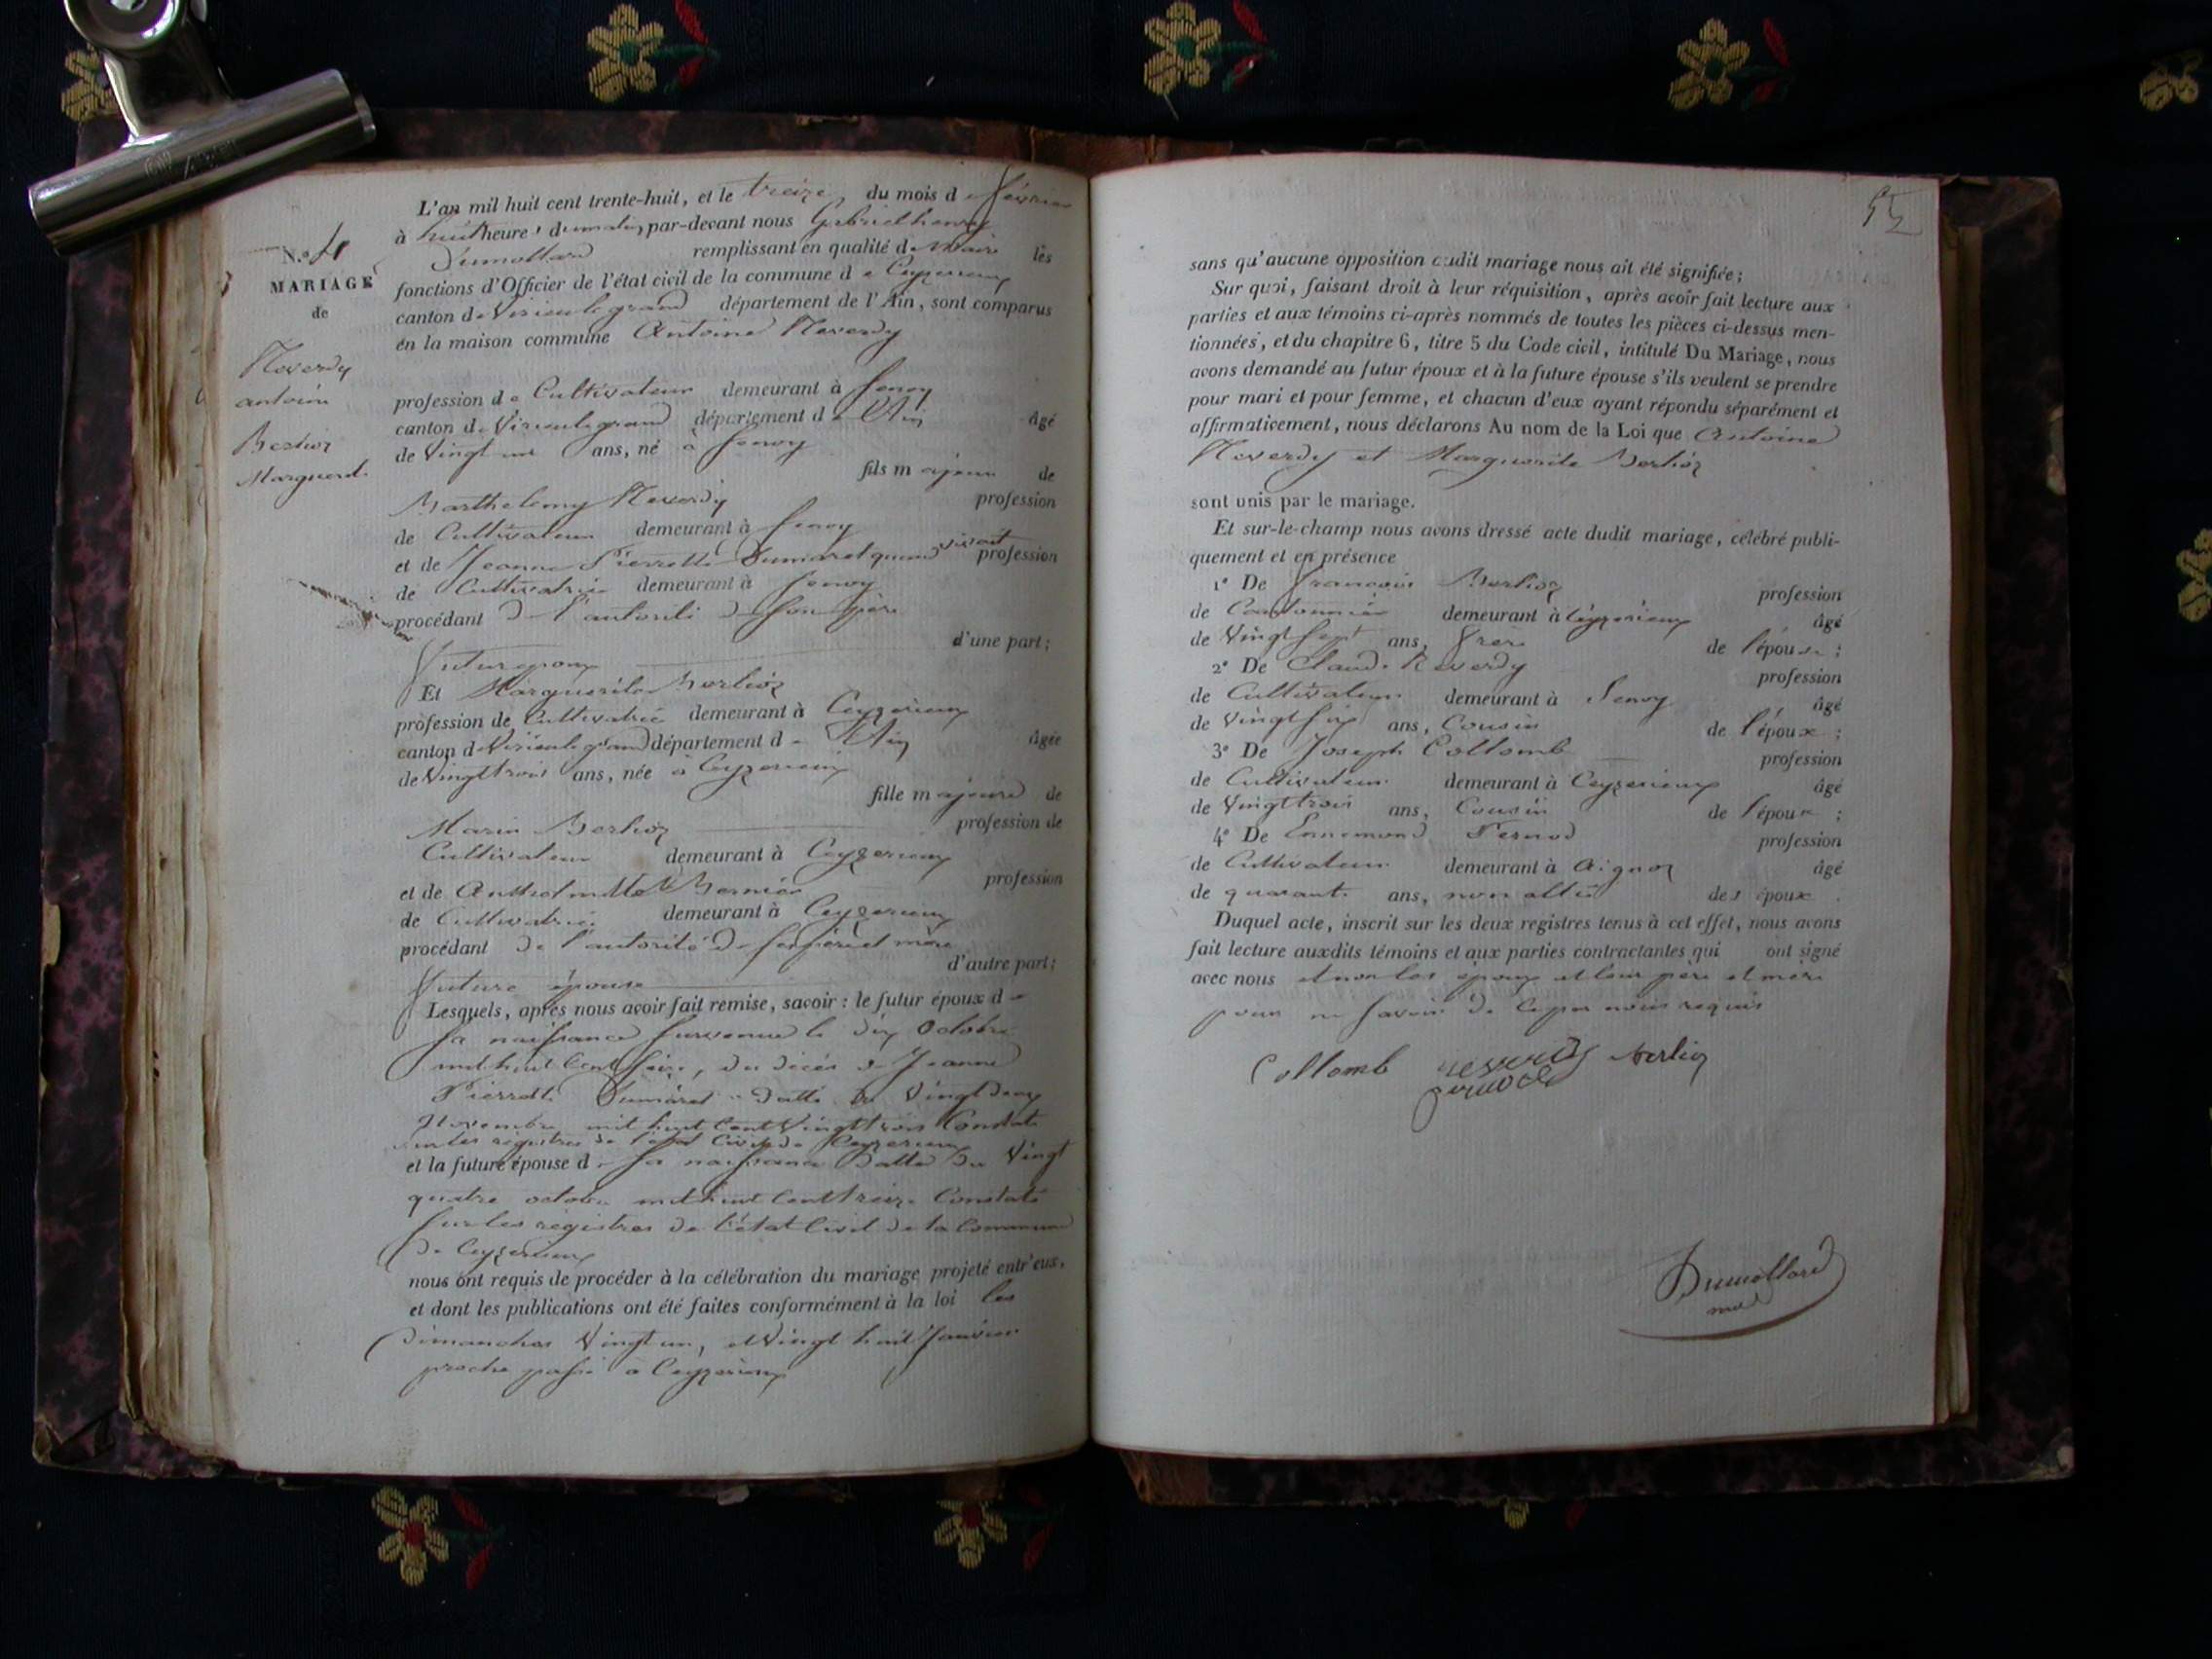 N.° 4
MARIAGE
de
Reverdy
antoine
Berlioz
Marguerite
L'an mil huit cent trente-huit, et le treize du mois de février
à huit heures du matin, par-devant nous Gabriel henry
Dumollard remplissant en qualité de Maire les
fonctions d'Officier de l'état civil de la commune de Ceyzerieux
canton de Virieu le grand département de l'Ain, sont comparus
en la maison commune Antoine Reverdy
profession de Cultivateur demeurant à
canton de Virieu le grand département de l'Ain âgé
de Vingt un ans, né à
fils majeur de
Barthelemy Reverdy profession
de Cultivateur demeurant à
et de Jeanne Pierrette Dumaret quand vivait profession
de Cultivatrice demeurant à
procédant de l'autorité de son père
d'une part;
futur epoux
Et Marguerite Berlioz
profession de Cultivatrice demeurant à Ceyzerieux
canton de Virieu le grand département de l'Ain âgée
de Vingt trois ans, née à Ceyzerieux
fille majeure de
Marin Berlioz profession de
Cultivateur demeurant à Ceyzerieux
et de Anthelmette Bernier profession
de Cultivatrice demeurant à Ceyzerieux
procédant de l'autorité de ses père et mère
d'autre part;
future épouse
Lesquels, après nous avoir fait remise, savoir: le futur époux de
sa naissance survenue le dix Octobre
mil huit Cent seize, du décès de Jeanne
Pierrette Dumaret datté du Vingt deux
Novembre mil huit Cent Vingt trois Constaté
sur les registres de l'état Civil de Ceyzerieux
et la future épouse de sa naissance datté du Vingt
quatre octobre mil huit Cent treize Constaté
sur les régistres de l'état Civil de la Commune
de Ceyzerieux
nous ont requis de procéder à la célébration du mariage projeté entr'eux,
et dont les publications ont été faites conformément à la loi les
Dimanches Vingt un, et Vingt huit Janvier
proche passé à Ceyzerieux
sans qu'aucune opposition audit mariage nous ait été signifiée;
Sur quoi, faisant droit à leur réquisition, après avoir fait lecture aux
parties et aux témoins ci-après nommés de toutes les pièces ci-dessus men-
tionnées, et du chapitre 6, titre 5 du Code civil, intitulé Du Mariage, nous
avons demandé au futur époux et à la future épouse s'ils veulent se prendre
pour mari et pour femme, et chacun d'eux ayant répondu séparément et
affirmativement, nous déclarons Au nom de la Loi que Antoine
Reverdy et Marguerite Berlioz
sont unis par le mariage.
Et sur-le-champ nous avons dressé acte dudit mariage, célébré publi-
quement et en présence
1° De françois Berlioz profession
de Cantonnier demeurant à Ceyzerieux âgé
de Vingt sept ans, frere de l'épouse;
2° De Claude Reverdy profession
de Cultivateur demeurant à âgé
de Vingt six ans, Cousin de l'époux;
3° De Joseph Collomb profession
de Cultivateur demeurant à Ceyzerieux âgé
de Vingt trois ans, Cousin de l'époux;
4° De Ennemond Pernod profession
de Cultivateur demeurant à Aignoz âgé
de quarante ans, non allié des époux.
Duquel acte, inscrit sur les deux registres tenus à cet effet, nous avons
fait lecture auxdits témoins et aux parties contractantes qui ont signé
avec nous et non les époux et leur père et mère
pour ne savoir de ce par nous requis
Collomb reverdy Berlioz
pernod
Dumollard